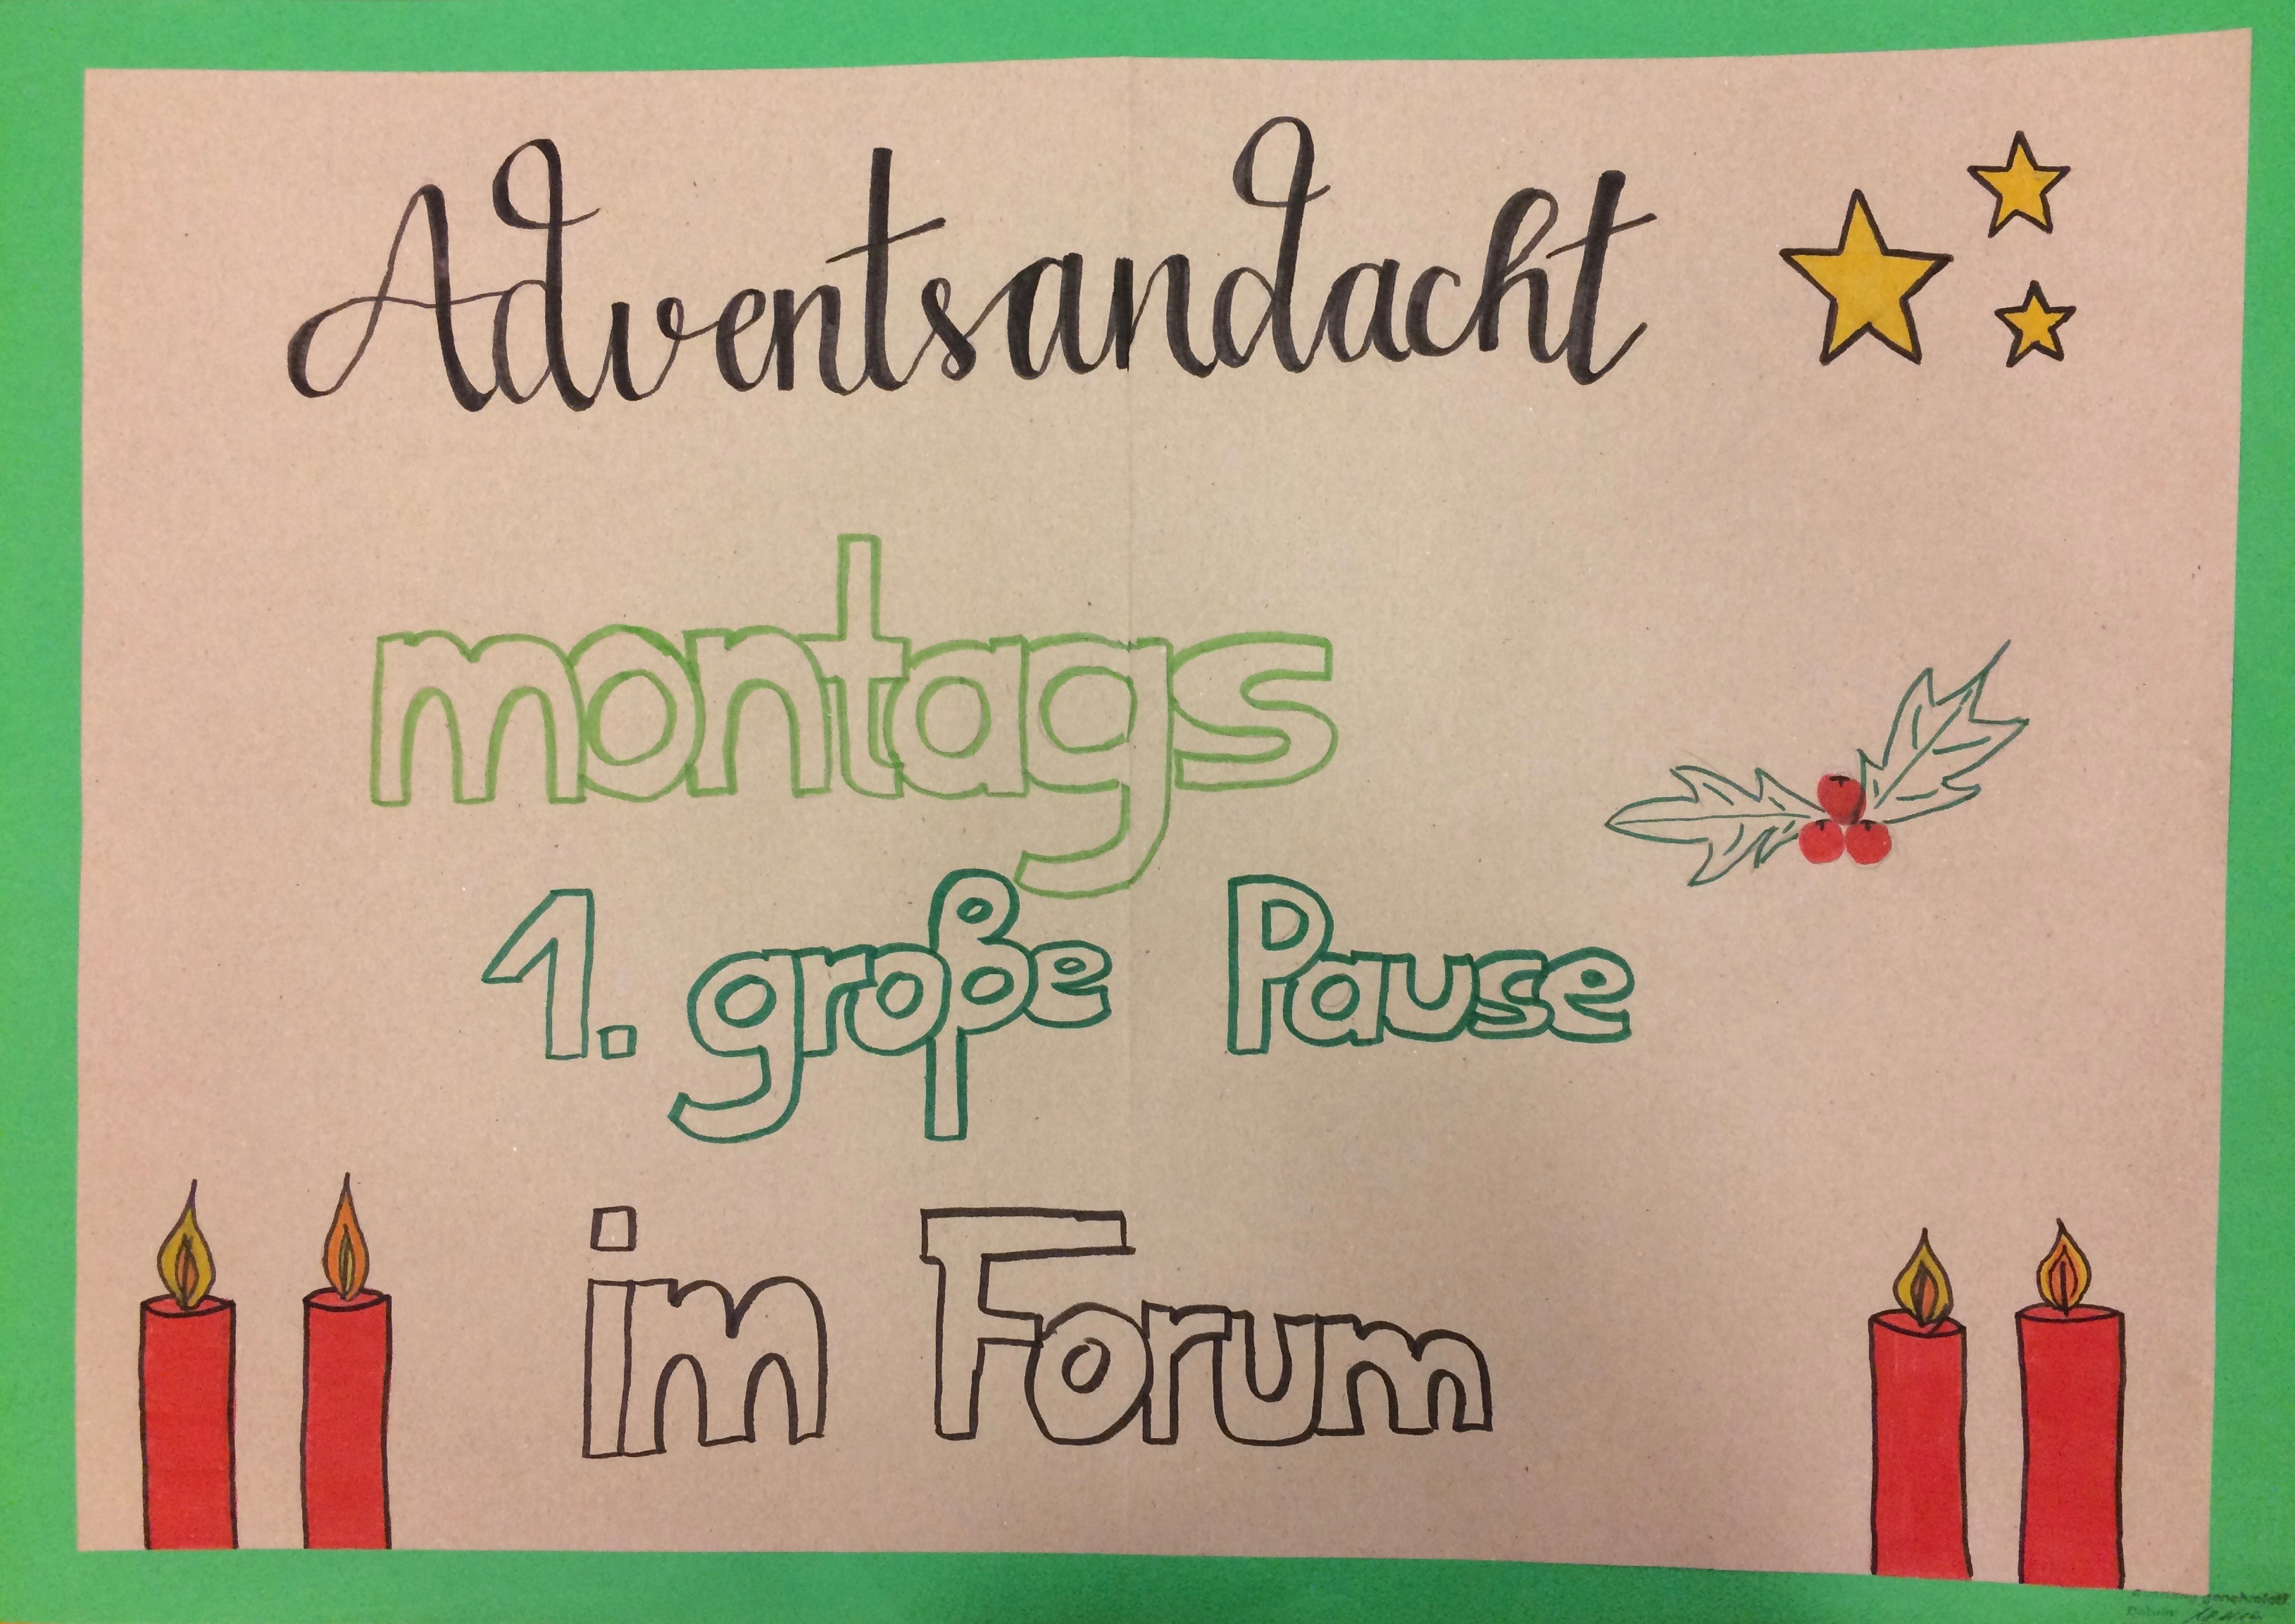 Adventsandacht
montags
1. große Pause
im Forum